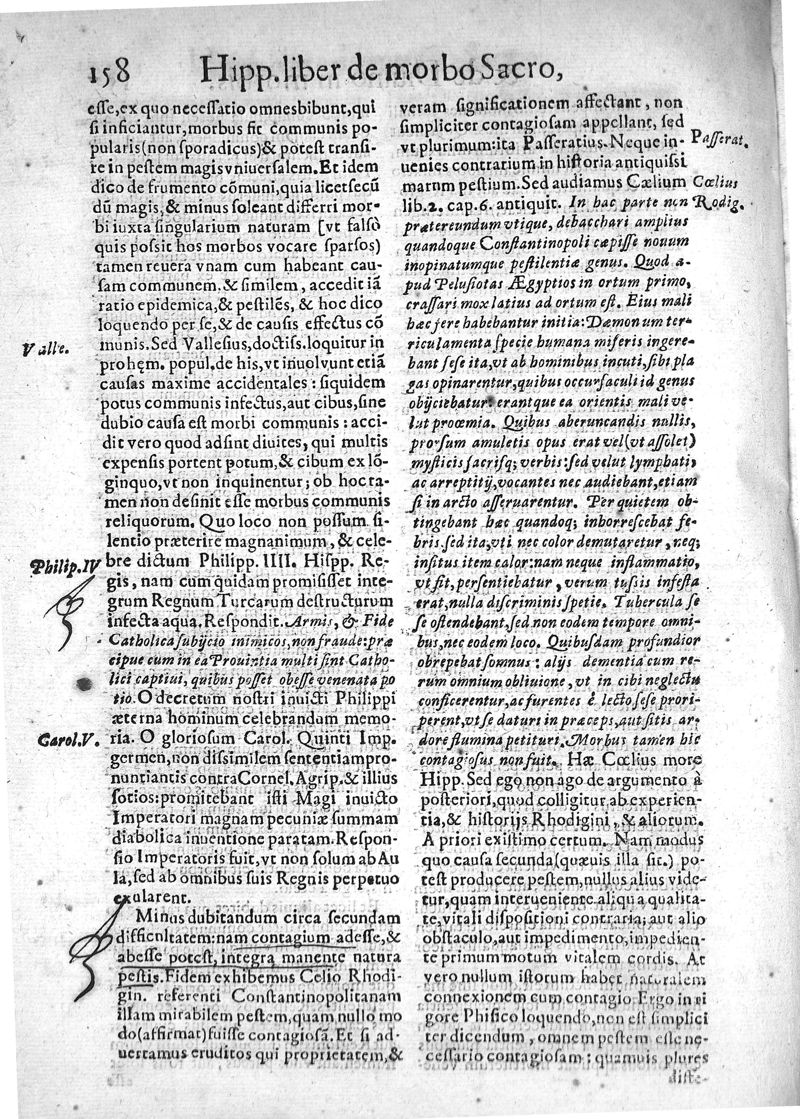 158 Hipp. liber de morbo Sacro,
esse, ex quo necessatio omnesbibunt, qui
si inficiantur, morbus fit communis po-
pularis (non sporadicus) & potest transi-
re in pestem magis vniuersalem. Et idem
dico de frumento cōmuni, quia licet secū
dū magis, & minus soleant differri mor-
bi iuxta singularium naturam [vt falsò
quis possit hos morbos vocare sparsos)
tamen reuera vnam cum habeant cau-
sam communem, & similem, accedit iā
ratio epidemica, & pestilēs, & hoc dico
loquendo per se, & de causis effectus cō
munis. Sed Vallesius, doctiss. loquitur in
prohęm. popul. de his, vt inuoluunt etiā
causas maxime accidentales: siquidem
potus communis infectus, aut cibus, sine
dubio causa est morbi communis: acci-
dit vero quod adsint diuites, qui multis
expensis portent potum, & cibum ex lō-
ginquo, vt non inquinentur; ob hoc ta-
men non desinit esse morbus communis
reliquorum. Quo loco non possum si-
lentio præterire magnanimum, & cele-
bre dictum Philipp. IIII. Hispp. Re-
gis, nam cum quidam promisisset inte-
grum Regnum Turcarum destructurum
infecta aqua. Respondit. Armis, & Fide
Catholica subijcio inimicos, non fraude: præ
cipue cum in ea Prouintia multi sint Catho-
lici captiui, quibus posset obesse venenata po
tio. O decretum nostri inuicti Philippi
æterna hominum celebrandum memo-
ria. O gloriosum Carol. Quinti Imp.
germen, non dissimilem sententiam pro-
nuntiantis contra Cornel. Agrip. & illius
sotios: promitebant isti Magi inuicto
Imperatori magnam pecuniæ summam
diabolica inuentione paratam. Respon-
sio Imperatoris fuit, vt non solum ab Au
la, sed ab omnibus suis Regnis perpetuo
exularent.
Minus dubitandum circa secundam
difficultatem: nam contagium adesse, &
abesse potest, integra manente natura
pestis. Fidem exhibemus Celio Rhodi-
gin. referenti Constantinopolitanam
illam mirabilem pestem, quam nullo mo
do (affirmat) fuisse contagiosā. Et si ad-
uertamus eruditos qui proprietatem, &
Valle.
Philip. IV
Carol. V.
veram significationem affectant, non
simpliciter contagiosam appellant, sed
vt plurimum: ita Passeratius. Neque in-
uenies contrarium in historia antiquissi
marum pestium. Sed audiamus Cælium
lib. 2. cap. 6. antiquit. In hac parte non
prætereundum vtique, debacchari amplius
quandoque Constantinopoli cœpisse nouum
inopinatumque pestilentiæ genus. Quod a-
pud Pelusiotas Ægyptios in ortum primo,
crassari mox latius ad ortum est. Eius mali
hæc fere habebantur initia: Dæmonum ter-
riculamenta specie humana miseris ingere-
bant sese ita, vt ab hominibus incuti, sibi pla
gas opinarentur, quibus occursaculi id genus
obijciebatur erantque ea orientis mali ve-
lut proœmia. Quibus aberuncandis nullis,
prorsum amuletis opus erat vel (vt assolet)
mysticis sacrisq; verbis: sed velut lymphati,
ac arreptitij, vocantes nec audiebant, etiam
si in arcto asseruarentur. Per quietem ob-
tingebant hæc quandoq; inhorrescebat fe-
bris. sed ita, vti nec color demutaretur, neq;
insitus item calor: nam neque inflammatio,
vt fit, persentiebatur, verum tussis infesta
erat, nulla discriminis spetie. Tubercula se
se ostendebant, sed non eodem tempore omni-
bus, nec eodem loco. Quibusdam profundior
obrepebat somnus: alijs dementia cum re-
rum omnium obliuione, vt in cibi neglectu
conficerentur, ac furentes è lecto sese prori-
perent, vt se daturi in præceps, aut sitis ar-
dore flumina petituri. Morbus tamen hic
contagiosus non fuit. Hæ Cœlius more
Hipp. Sed ego non ago de argumento à
posteriori, quod colligitur ab experien-
tia, & historijs Rhodigini, & aliorum.
A priori existimo certum. Nam modus
quo causa secunda (quæuis illa sit.) po-
test producere pestem, nullus alius vide-
tur, quam interueniente aliqua qualita-
te, vitali dispositioni contraria; aut alio
obstaculo, aut impedimento, impedien-
te primum motum vitalem cordis. At
vero nullum istorum habet naturalem
connexionem cum contagio. Ergo in ri
gore Phisico loquendo, non est simplici
ter dicendum, omnem pestem esse ne-
cessario contagiosam: quamuis plures
diste-
Passerat.
Cœlius
Rodig.